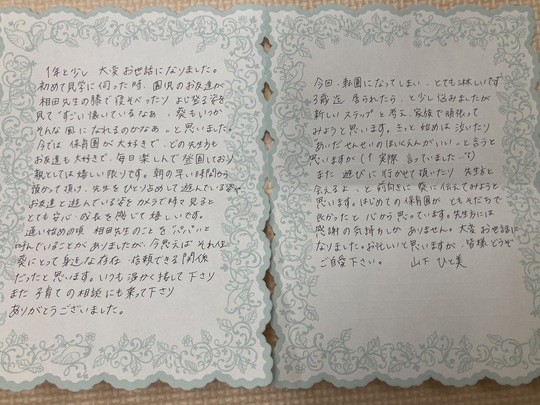 1年と少し 大変お世話になりました。
初めて見学に伺った時、園児のお友達が
相田先生の膝で寝そべったり よじ登る姿を
見て"すごい懐いているなあ、葵もいつか
そんな風になれるのかなあ。と思いました。
今では 保育園が大好きで、どの先生方も
お友達も大好きで、毎日楽しんで登園しており
親としては嬉しい限りです。朝の早い時間から
預かって頂け、先生をひとり占めして遊んでいる姿や
お友達と遊んでいる姿をカメラで時々見ると
とても安心・成長を感じて嬉しいです。
通い始めの頃 相田先生のことを"パパ"と
呼んでいることがありましたが、今思えば それは
葵にとって身近な存在、信頼できる関係
だったと思います。いつも温かく接して下さり
また 子育ての相談にも乗って下さり
ありがとうございました。
今回、転園になってしまい、とても淋しいです
3歳迄 居られたら、と少し悩みましたが
新しいステップと考え、家族で頑張って
みようと思います。きっと始めは 泣いたり
"あいだせんせいのほいくえんがいい"と言うと
思いますが(↑実際 言っていました
また 遊びに行かせて頂いたり 先生方と
会えるよ、と前向きに 葵に伝えてみようと
思います。はじめての保育園が ともそだちで
良かったと心から思っています。先生方には
感謝の気持ちしかありません。大変お世話に
なりました。お忙しいと思いますが、皆様どうぞ
ご自愛下さい。 山下 ひと美